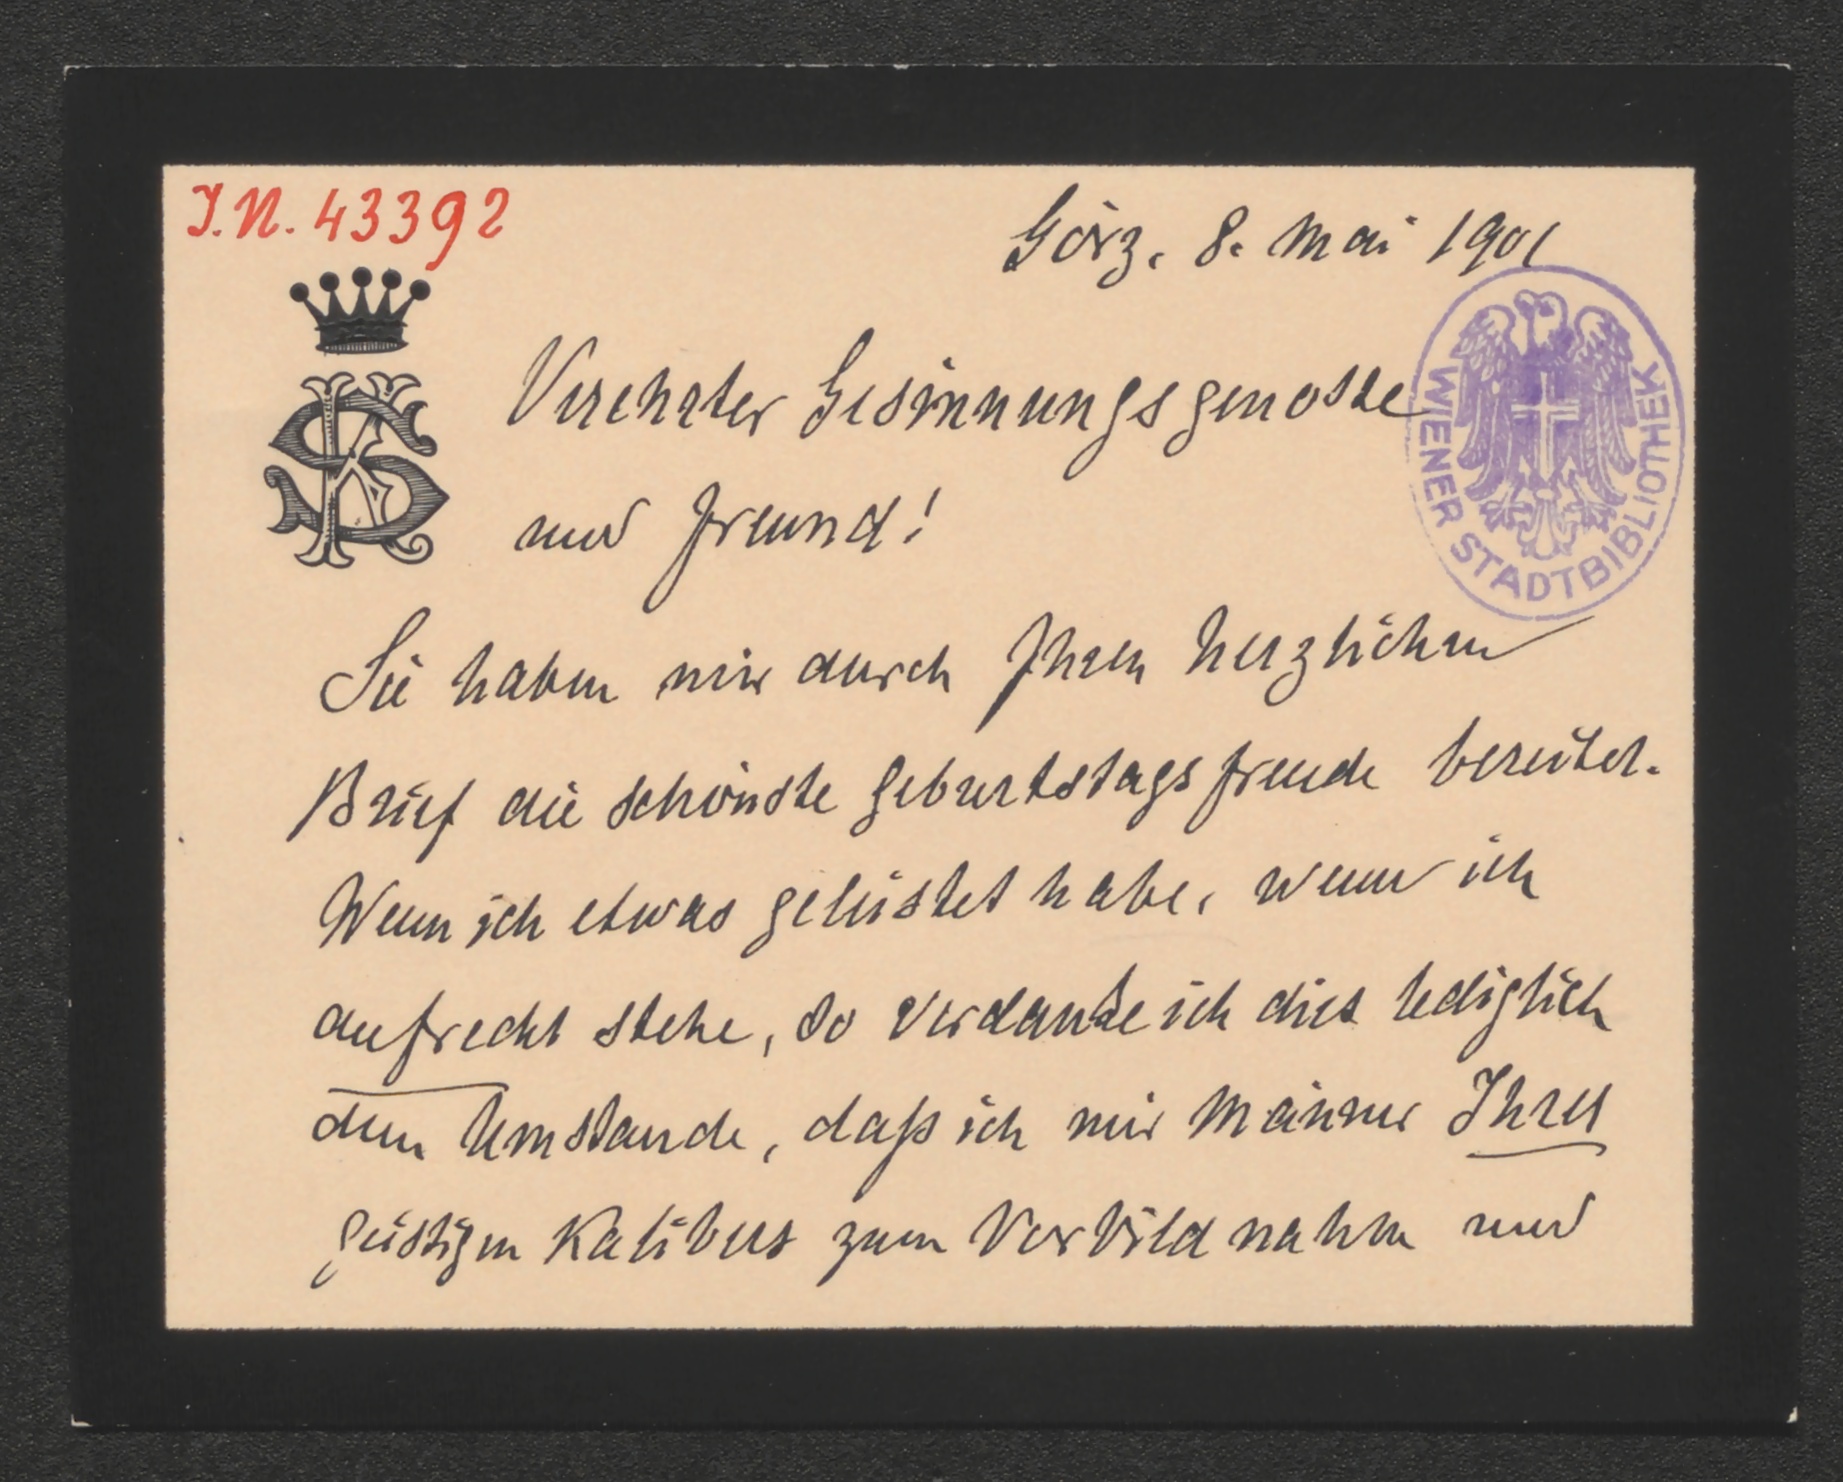 I.N. 43392
Görz, 8. Mai 1901
Verehrter Gesinnungsgenosse
und Freund!
WIENER STADTBIBLIOTHEK
Sie haben mir durch Ihren herzlichen
Brief die schönste Geburtstagsfreude bereitet.
Wenn ich etwas geleistet habe, wenn ich
aufrecht stehe, so verdanke ich dies lediglich
dem Umstande, daß ich mir Männer Ihres
geistigen Kalibers zum Vorbild nahm und